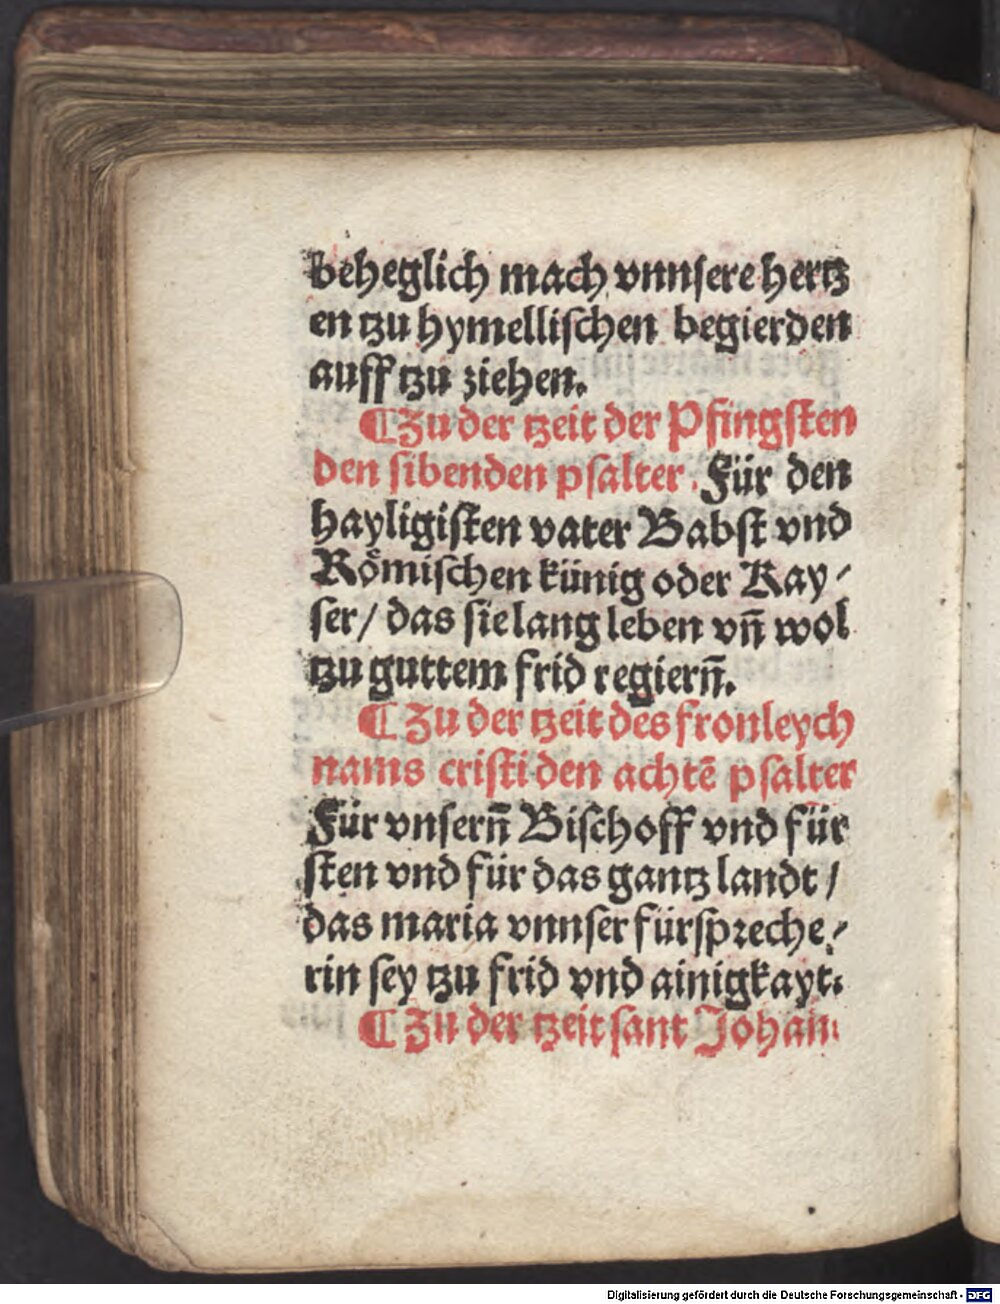 beheglich mach vnnsere hertz
en tzu hymellischen begierden
auff tzu ziehen.
¶ Zu der tzeit der Pfingsten
den sibenden psalter. Für den
hayligisten vater Babst vnd
Roͤmischen künig oder Kay⸗
ser / das sie lang leben vn̄ wol
tzu guttem frid regiern̄.
¶ Zu der tzeit des fronleych
nams cristi den achtē psalter
Für vnsern̄ Bischoff vnd für
sten vnd für das gantz landt /
das maria vnnser fürspreche⸗
rin sey tzu frid vnd ainigkayt.
¶ Zu der tzeit sant Johan.
Digitalisierung gefördert durch die Deutsche Forschungsgemeinschaft - DFG